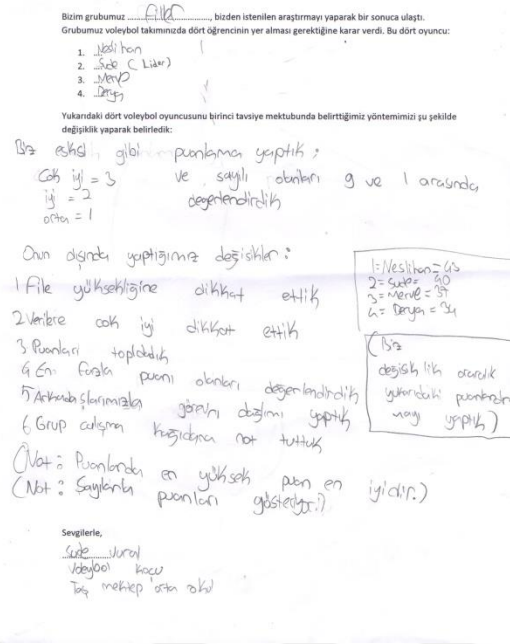 Bizim grubumuz ........File........, bizden istenilen araştırmayı yaparak bir sonuca ulaştı.
Grubumuz voleybol takımınızda dört öğrencinin yer alması gerektiğine karar verdi. Bu dört oyuncu:
1. Neslihan
2. Sude (Lider)
3. Merve
4. Derya
Yukarıdaki dört voleybol oyuncusunu birinci tavsiye mektubunda belirttiğimiz yöntemimizi şu şekilde
değişiklik yaparak belirledik:
Biz eskisi gibi puanlama yaptık;
Çok iyi = 3 ve sayılı olanları 9 ve 1 arasında
iyi = 2 değerlendirdik
orta = 1
Onun dışında yaptığımız değişikler:
1 File yüksekliğine dikkat ettik
2 Verilere çok iyi dikkat ettik
3 Puanları topladık
4 En fazla puanı olanları değerlendirdik
5 Arkadaşlarımızla görev dağlımı yaptık
6 Grup calışma kağıdına not tuttuk
1=Neslihan=43
2=Sude=40
3=Merve=37
4=Derya=34
(Biz
değişiklik olarak
yukarıdaki puanlandır
mayı yaptık)
(Not: Puanlarda en yüksek puan en iyidir.)
(Not: Sayılarla puanları gösteriyor.)
Sevgilerle,
Sude Vural
Voleybol kocu
Taş mektep orta okul